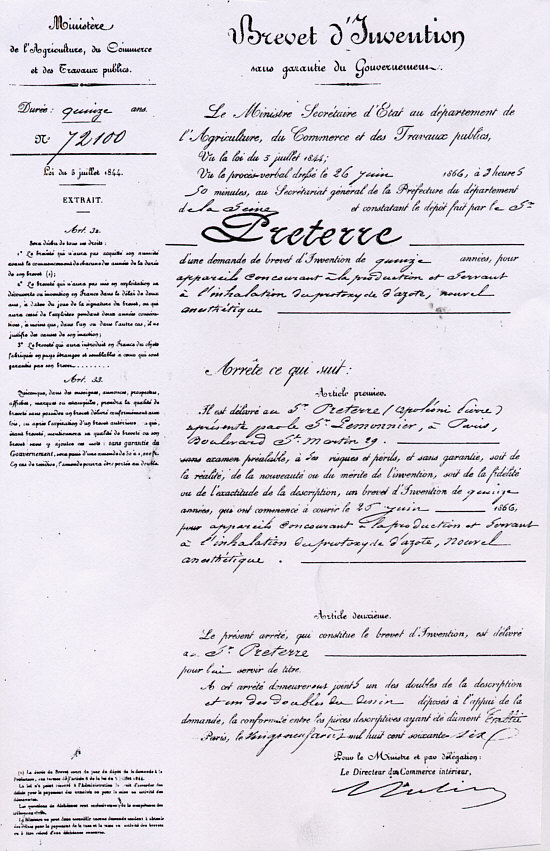 Ministère
de l'Agriculture, du Commerce
et des Travaux publics.
Durée: quinze ans.
N° 72100
Loi du 5 juillet 1844.
EXTRAIT.
Art. 32.
Sera déchu de tous ses droits:
1° Le breveté qui n'aura pas acquitté son annuité
avant le commencement de chacune des années de la durée
de son brevet (1);
2° Le breveté qui n'aura pas mis en exploitation sa
découverte ou invention en France dans le délai de deux
ans, à dater du jour de la signature du brevet, ou qui
aura cessé de l'exploiter pendant deux années consécu-
tives, à moins que, dans l'un ou l'autre cas, il ne
justifie des causes de son inaction;
3° Le breveté qui aura introduit en France des objets
fabriqués en pays étranger et semblables à ceux qui sont
garantis par son brevet.......
Art. 33.
Quiconque, dans des enseignes, annonces, prospectus,
affiches, marques ou estampilles, prendra la qualité de
breveté sans posséder un brevet délivré conformément aux
lois, ou après l'expiration d'un brevet antérieur, ou qui,
étant breveté, mentionnera sa qualité de breveté ou son
brevet sans y ajouter ces mots: sans garantie du
Gouvernement, sera puni d'une amende de 50 à
En cas de récidive, l'amende pourra être portée au double.
Brevet d'Invention
sans garantie du Gouvernement.
Le Ministre Secrétaire d'État au département de
l'Agriculture, du Commerce et des Travaux publics,
Vu la loi du 5 juillet 1844;
Vu le procès-verbal dressé le 26 juin 1866, à 3 heures
50 minutes, au Secrétariat général de la Préfecture du département
de la Seine et constatant le dépôt fait par le Sr
Preterre
d'une demande de brevet d'Invention de quinze années, pour
appareils concourant à la production et servant
à l'inhalation du protoxyde d'azote, nouvel
anesthétique
Arrête ce qui suit:
Article premier.
Il est délivré au Sr Preterre (Apolloni Pierre)
représenté par le Sr Lemonnier, à Paris,
Boulevard St Martin 29.
sans examen préalable, à ses risques et périls, et sans garantie, soit de
la réalité, de la nouveauté ou du mérite de l'invention, soit de la fidélité
ou de l'exactitude de la description, un brevet d'Invention de quinze
années, qui ont commencé à courir le 25 juin 1866,
pour appareils concourant à la production et servant
à l'inhalation du protoxyde d'azote, nouvel
anesthétique.
Article deuxième.
Le présent arrêté, qui constitue le brevet d'Invention, est délivré
au Sr Preterre
pour lui servir de titre.
A cet arrêté demeureront joints un des doubles de la description
et un des doubles du dessin déposés à l'appui de la
demande, la conformité entre les pièces descriptives ayant été dûment
Paris, le mil huit cent soixante six
Pour le Ministre et par délégation:
Le Directeur du Commerce intérieur,